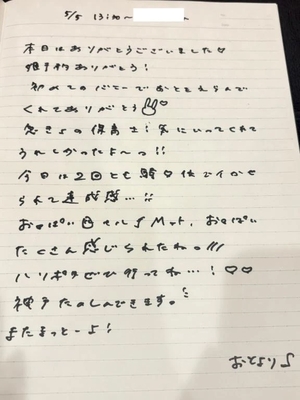 5/5 13:00〜
本日はありがとうございました♡
姫予約ありがとう!
初めての バビーでおとよえらんで
くれてありがとう♡
急きょの保育士!気にいってくれて
うれしかったよ〜っ!!
今日は2回とも騎◯位でイかせ
られて達成感…!!
おっぱい Mット、おっぱい
たくさん感じられたねっ///
ハリポタぜひ行ってね…!♡♡
神戸たのしんできます。
またまっとーよ!
おとより♪